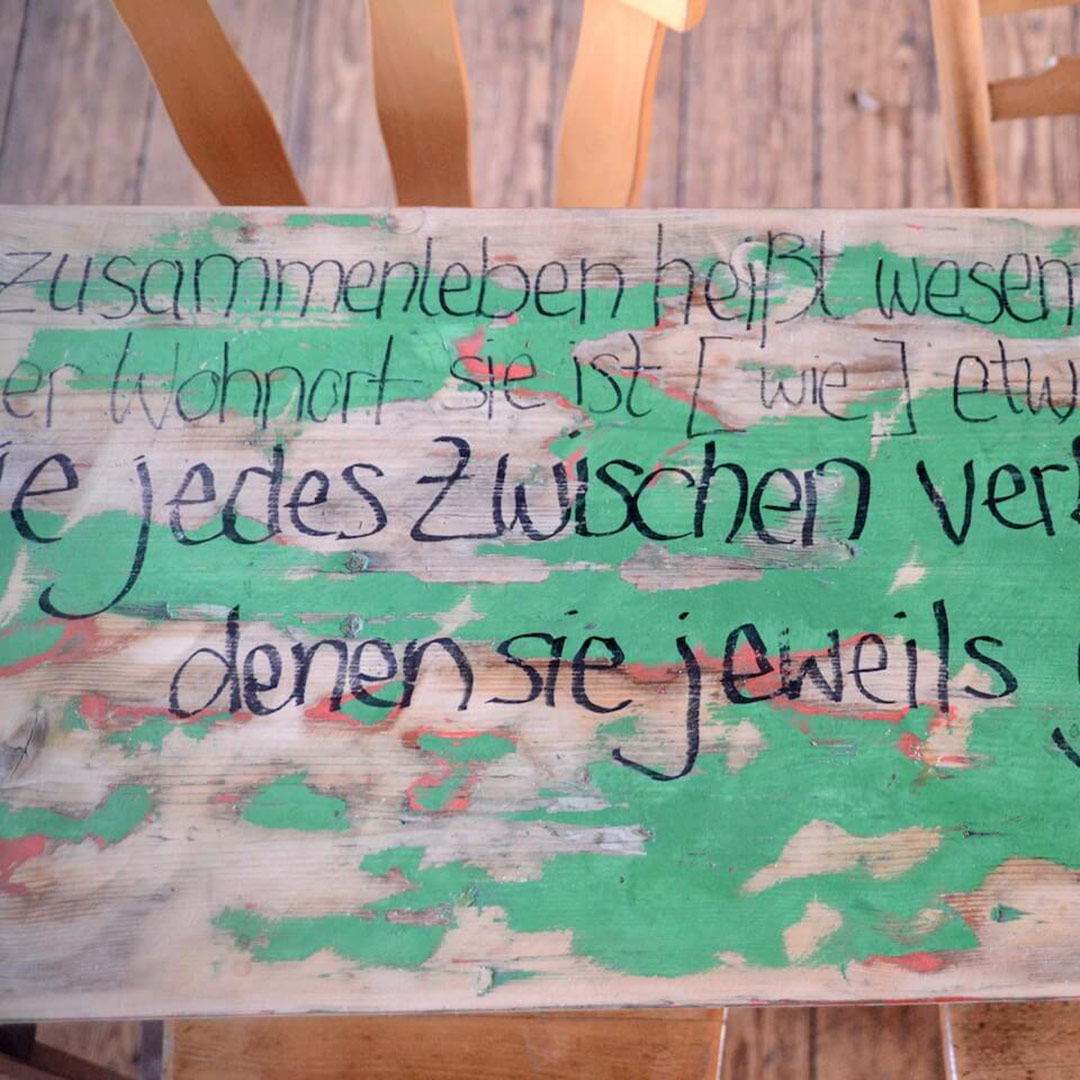 zusammenleben heißt wesen
er Wohnort sie ist [wie] etw
ie jedes Zwischen ver
denen sie jeweils